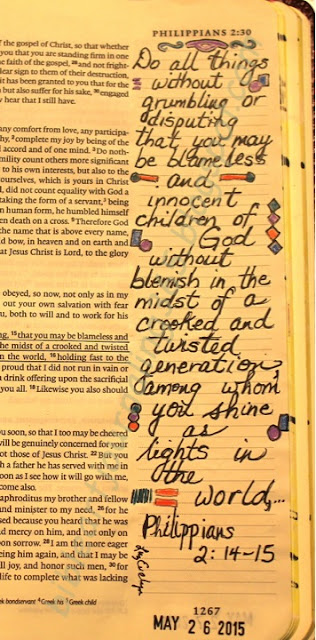 PHILIPPIANS 2:30
of the gospel of Christ, so that whether
you that you are standing firm in one
he faith of the gospel, 28 and not fright-
lear sign to them of their destruction,
it has been granted to you that for the
n but also suffer for his sake, 30 engaged
w hear that I still have.
any comfort from love, any participa-
hy, 2 complete my joy by being of the
l accord and of one mind. 3 Do noth-
mility count others more significant
to his own interests, but also to the
ourselves, which is yours in Christ
, did not count equality with God a
taking the form of a servant, 7 being
n human form, he humbled himself
en death on a cross. 9 Therefore God
the name that is above every name,
d bow, in heaven and on earth and
at Jesus Christ is Lord, to the glory
obeyed, so now, not only as in my
out your own salvation with fear
ou, both to will and to work for his
ng, 15 that you may be blameless and
he midst of a crooked and twisted
n the world, 16 holding fast to the
proud that I did not run in vain or
drink offering upon the sacrificial
you all. 18 Likewise you also should
ou soon, so that I too may be cheered
will be genuinely concerned for your
ot those of Jesus Christ. 22 But you
h a father he has served with me in
soon as I see how it will go with me,
come also.
aphroditus my brother and fellow
and minister to my need, 26 for he
sed because you heard that he was
d mercy on him, and not only on
pon sorrow. 28 I am the more eager
eing him again, and that I may be
ll joy, and honor such men, 30 for
life to complete what was lacking
ek bondservant 4 Greek his 5 Greek child
Do all things
without
grumbling or
disputing
that you may
be blameless
and
innocent
children of
God
without
blemish in the
midst of a
crooked and
twisted
generation,
among whom
you shine
as
lights in
the
world,...
Philippians
2:14-15
1267
MAY 26 2015